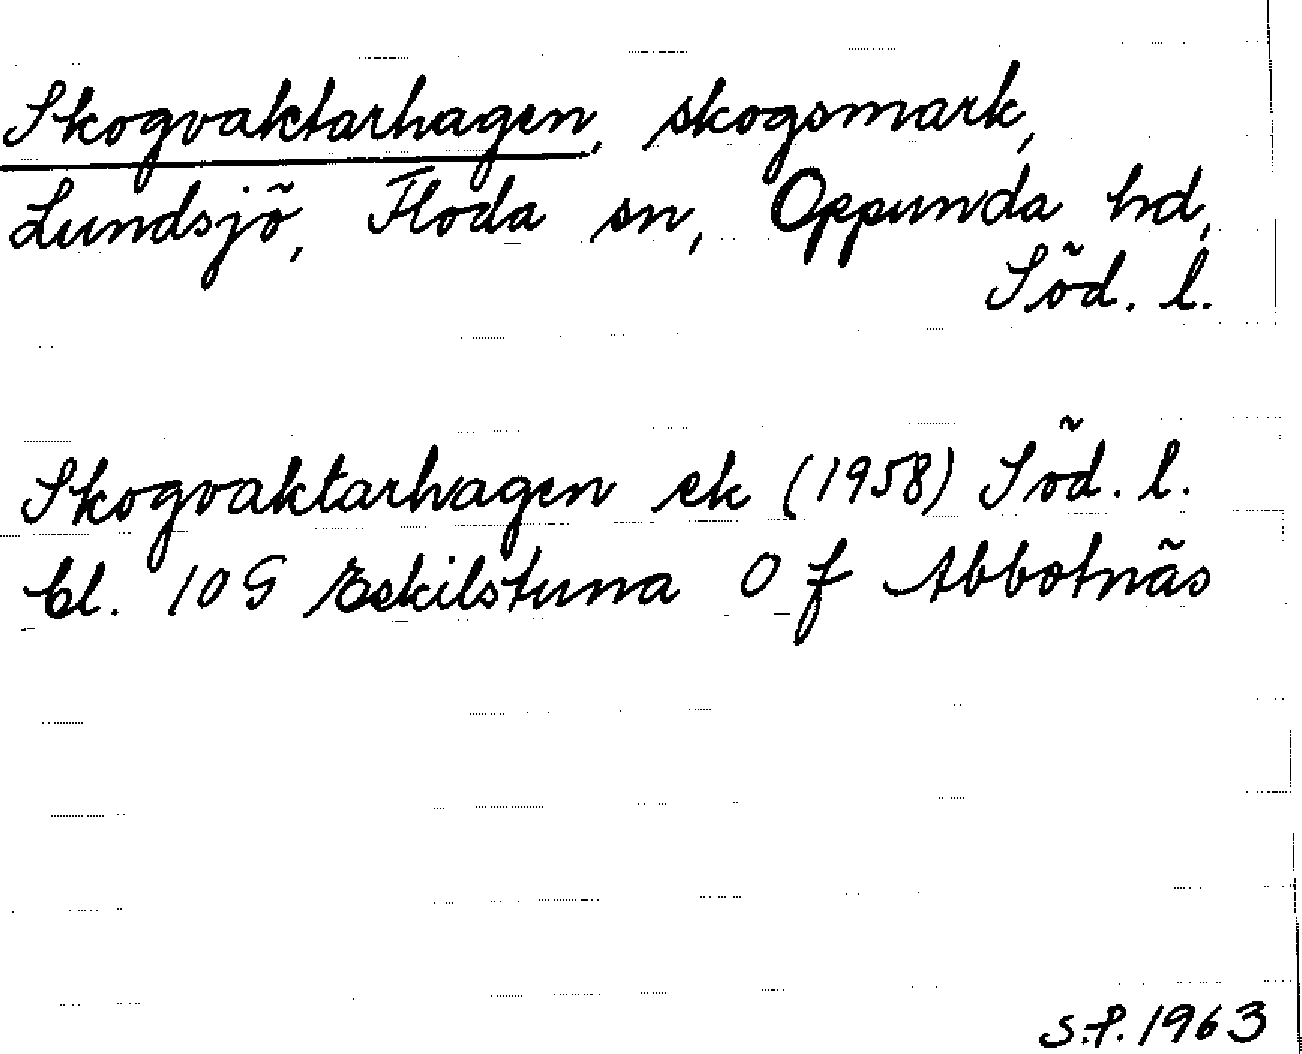 Skogvaktarhagen, skogsmark,
Lundsjö, Floda sn, Oppunda hd,
Söd. l.
Skogvaktarhagen ek (1958) Söd. l.
bl. 10 G Eskilstuna 0 f Abbotnäs
S.P. 1963